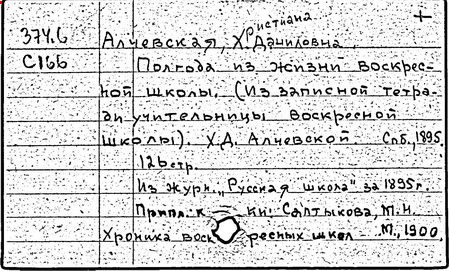 ристиана +
374.6 Алчевская, Х. Даниловна.
С166 Полгода из жизни воскрес-
ной школы. (Из записной тетра-
ди учительницы воскресной
школы). Х.Д. Алчевской. Спб., 1895.
126 стр.
Из журн. „Русская школа" за 1895 г.
Припл. к кн: Салтыкова, М.Н.
Хроника воск ресных школ М., 1900.